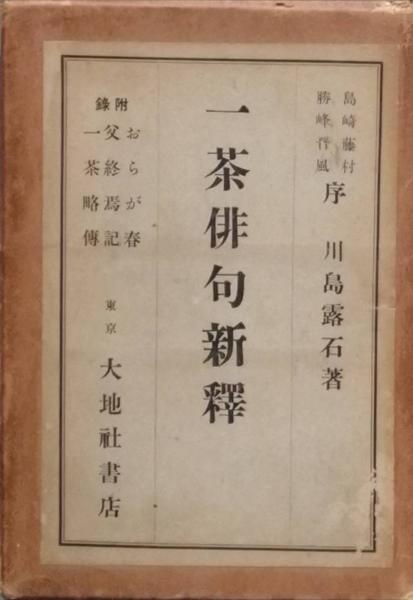 島崎藤村
勝峰晉風
序
川島露石著
一茶俳句新釋
附錄
おらが春
父終焉記
一茶略傳
東京
大地社書店